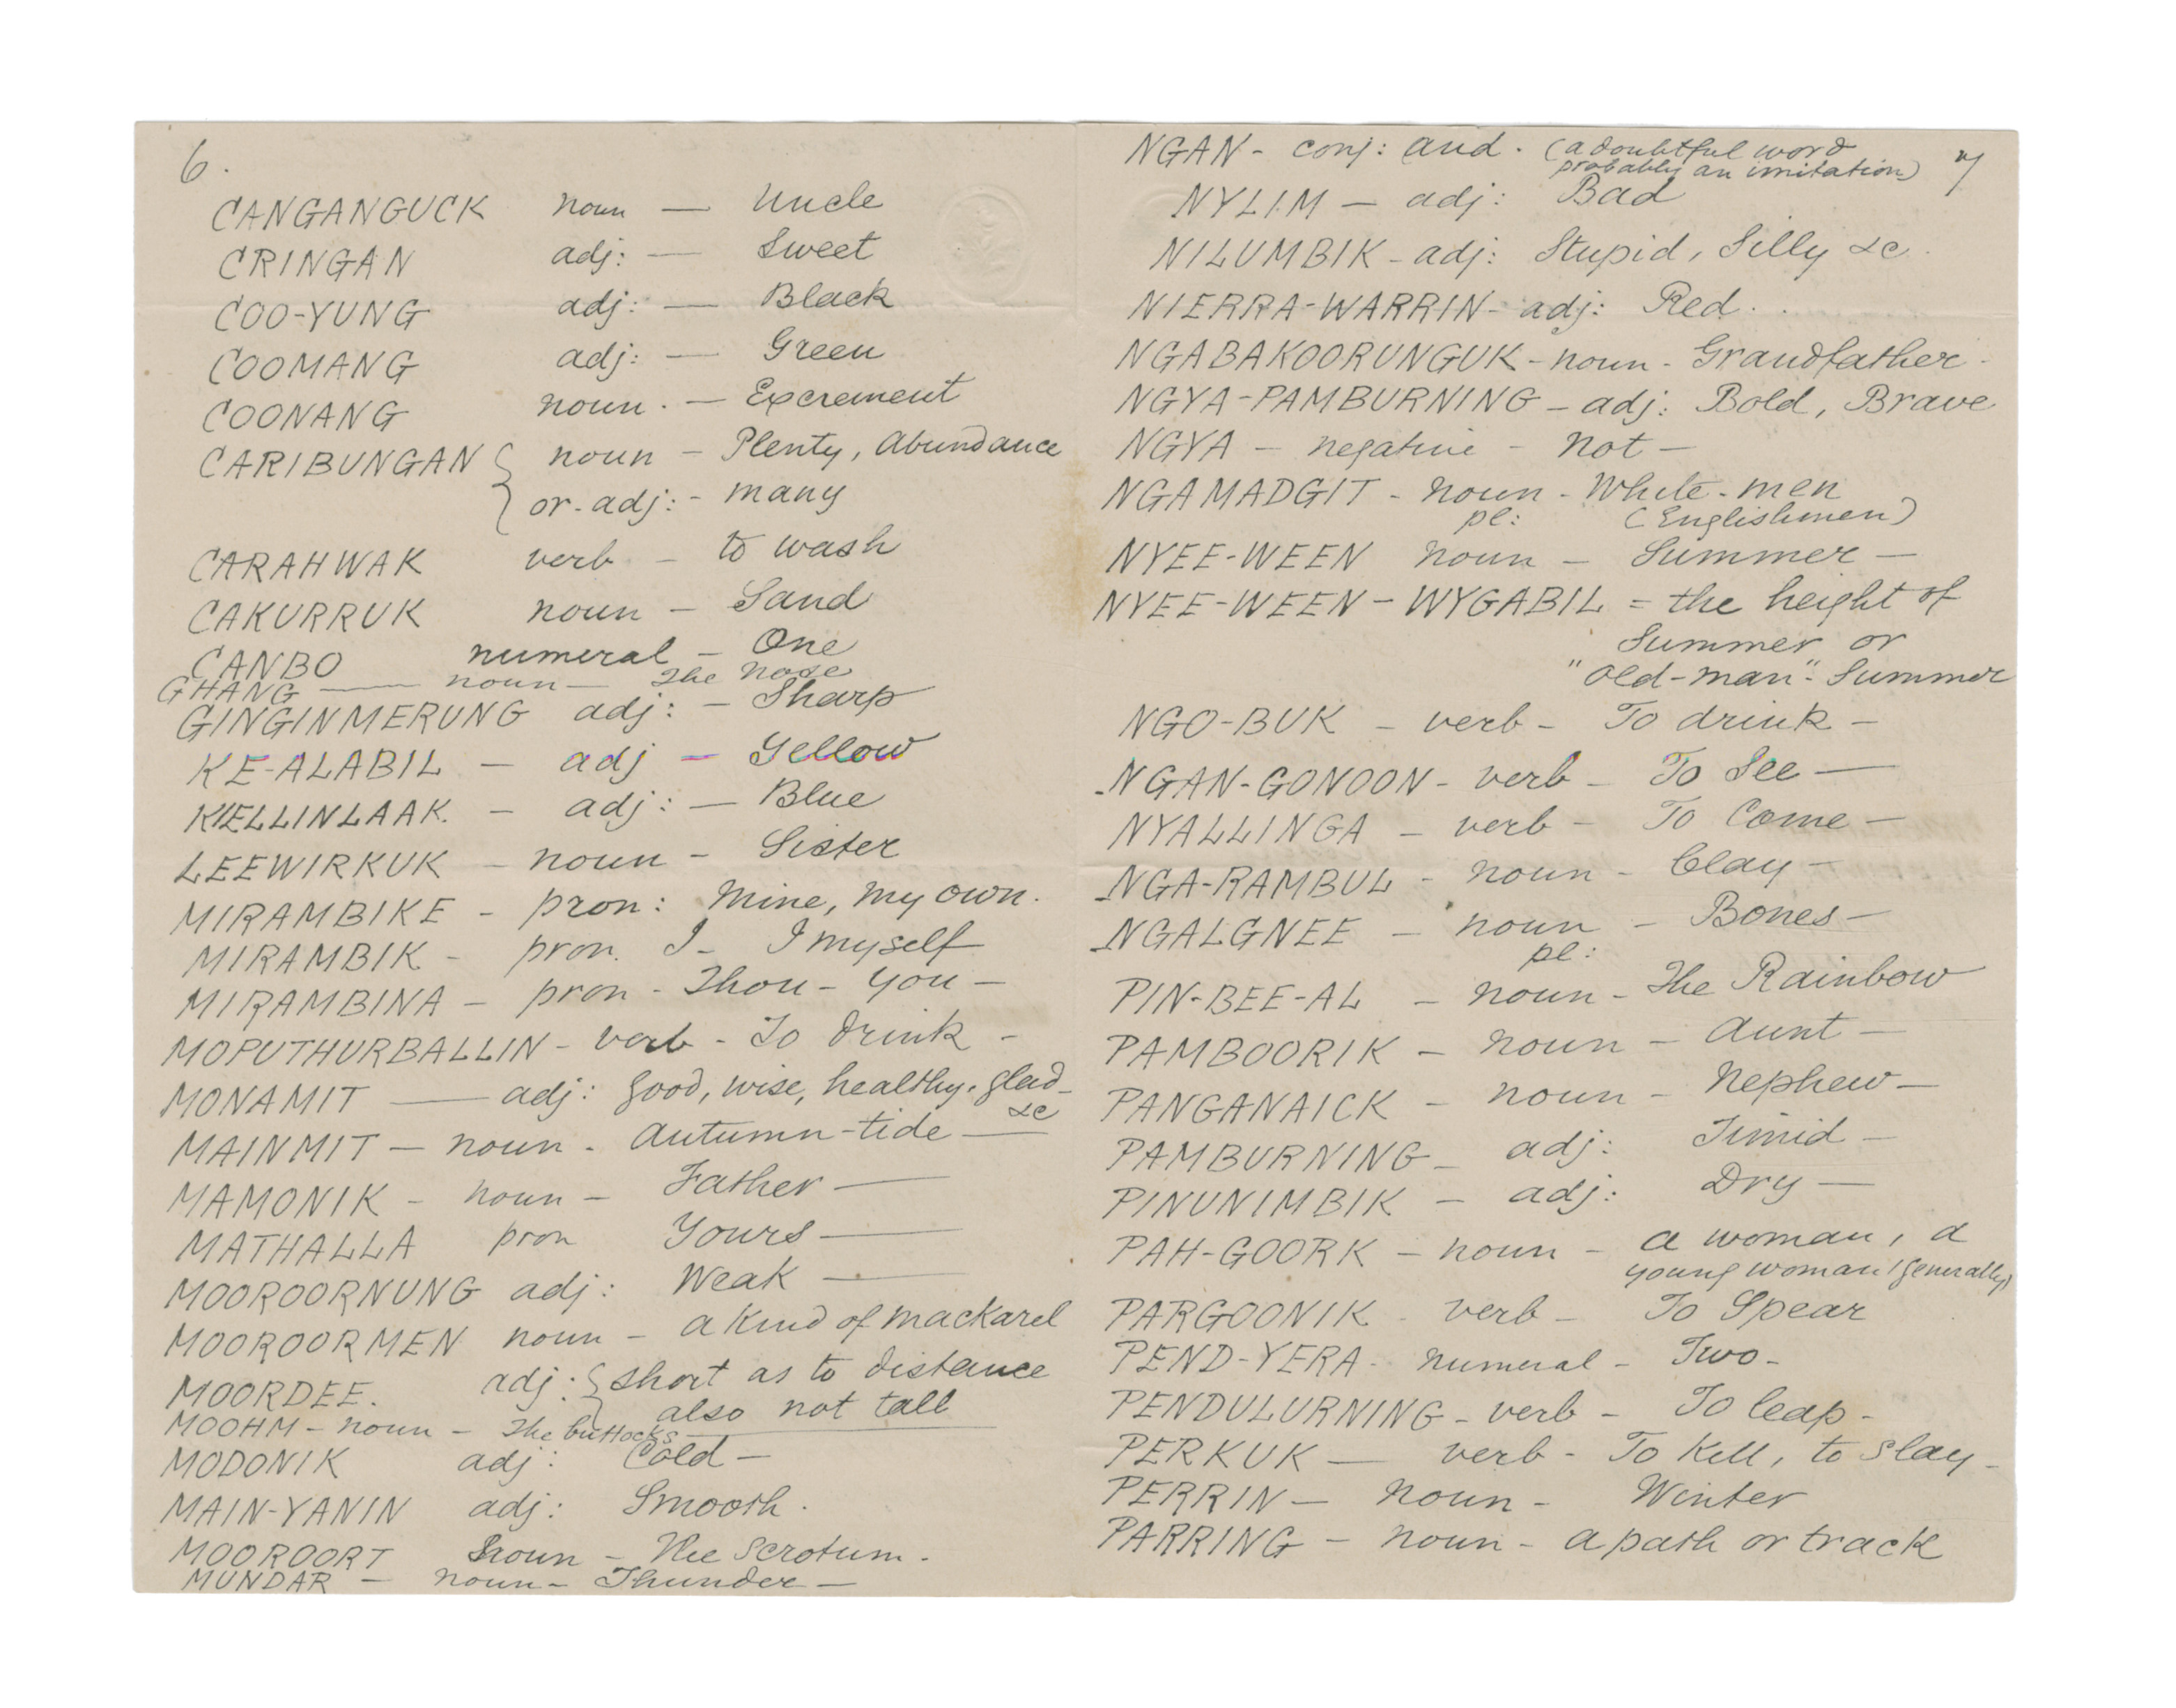 6.
CANGANGUCK noun — Uncle
CRINGAN adj: — Sweet
COO-YUNG adj: — Black
COOMANG adj: — Green
COONANG noun. — Excrement
CARIBUNGAN { noun — Plenty, abundance
or adj: - many
CARAHWAK verb - to wash
CAKURRUK noun - Sand
CANBO numeral - One
GHANG — noun — The nose
GINGINMERUNG adj: - Sharp
KE-ALABIL — adj — Yellow
KIELLINLAAK. - adj: — Blue
LEEWIRKUK - noun - Sister
MIRAMBIKE - pron: Mine, my own.
MIRAMBIK - pron. I - I myself
MIRAMBINA - pron - Thou - You -
MOPUTHURBALLIN - verb - To drink -
MONAMIT — adj: good, wise, healthy, glad
&c
MAINMIT - noun - Autumn-tide —
MAMONIK - noun - Father —
MATHALLA pron Yours —
MOOROORNUNG adj: Weak —
MOOROORMEN noun - a kind of mackarel
MOORDEE. adj: { short as to distance
also not tall
MOOHM - noun - The buttocks —
MODONIK adj: Cold —
MAIN-YANIN adj: Smooth.
MOOROORT noun - The Scrotum -
MUNDAR - noun - Thunder —
NGAN - conj: and. (a doubtful word 7
probably an imitation)
NYLIM — adj: Bad
NILUMBIK - adj: Stupid, Silly &c.
NIERRA-WARRIN - adj: Red.
NGABAKOORUNGUK - noun - Grandfather -
NGYA-PAMBURNING - adj: Bold, Brave
NGYA - negative - not —
NGAMADGIT - noun - White-men
pl: (Englishmen)
NYEE-WEEN noun - Summer —
NYEE-WEEN-WYGABIL = the height of
Summer or
"old-man" - Summer
NGO-BUK - verb - To drink -
NGAN-GONOON - verb - To See —
NYALLINGA - verb - To Come -
NGA-RAMBUL - noun - Clay -
NGALGNEE - noun - Bones -
pl:
PIN-BEE-AL - noun - The Rainbow
PAMBOORIK - noun - Aunt —
PANGANAICK - noun - Nephew -
PAMBURNING - adj: Timid -
PINUNIMBIK - adj: Dry —
PAH-GOORK - noun - a woman, a
young woman (generally)
PARGOONIK - verb - To Spear
PEND-YERA - numeral - Two -
PENDULURNING - verb - To leap -
PERKUK — verb - To Kill, to slay -
PERRIN - noun - Winter
PARRING - noun - a path or track